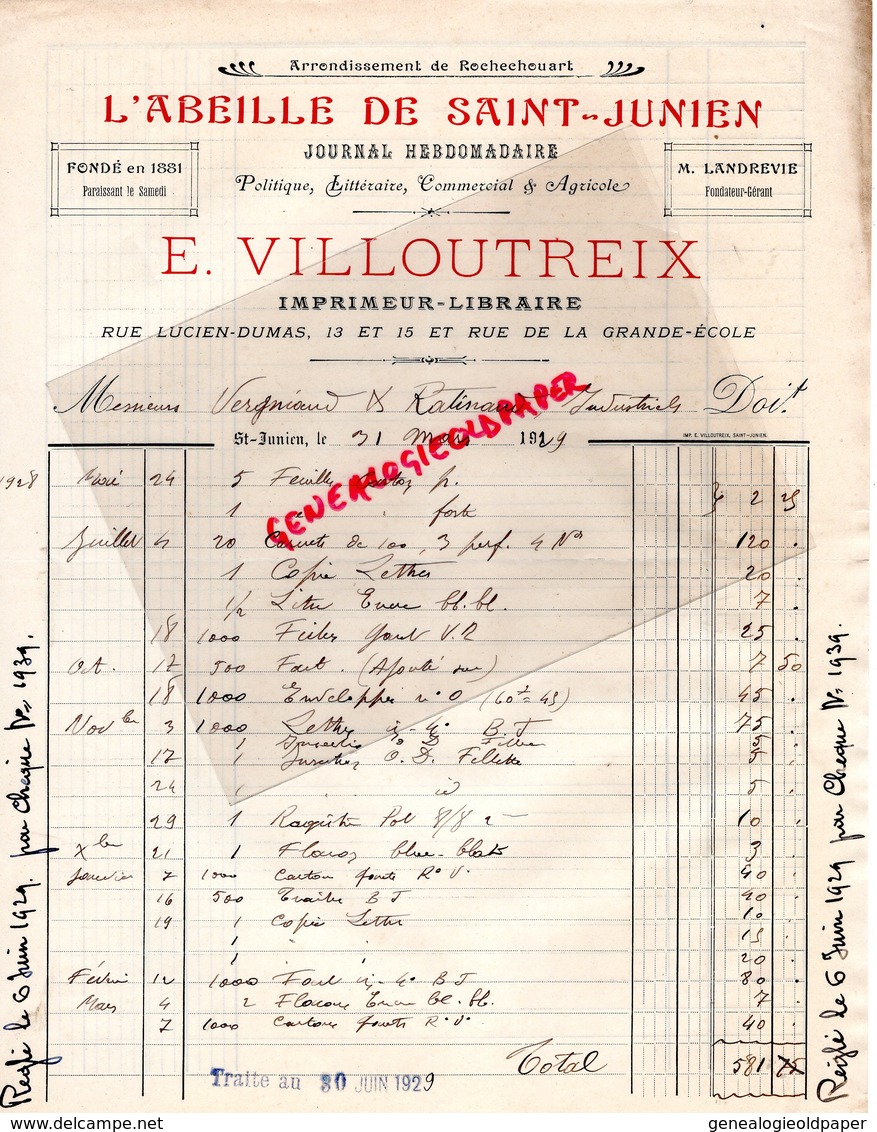 Arrondissement de Rochechouart
L'ABEILLE DE SAINT-JUNIEN
JOURNAL HEBDOMADAIRE
FONDÉ en 1881
Paraissant le Samedi
M. LANDREVIE
Fondateur-Gérant
Politique, Littéraire, Commercial & Agricole
E. VILLOUTREIX
IMPRIMEUR-LIBRAIRE
RUE LUCIEN-DUMAS, 13 ET 15 ET RUE DE LA GRANDE-ÉCOLE
Messieurs Vergniaud & Ratinaud Industriels Doit
IMP. E. VILLOUTREIX, SAINT-JUNIEN.
St-Junien, le 31 Mars 1929
GENEALOGIEOLDPAPER
1928 24 5 Feuilles p.
1 " " forte 2 25
Juillet 4 20 Carnets de 100, 3 perf. 4 Nos 120 .
1 Copie Lettres 20 .
1/2 Litre Encre bl. bl. 7 .
18 1000 V.R 25 .
Oct. 17 500 Fact. (Ajouté sur) 7 50
18 1000 Enveloppes no 0 (60 = 45) 45 .
Novbre 3 1000 Lettres in-4o B.J 75 .
1
17 1 O.D. Fillette 5 .
24 1 id 5 .
29 1 Registre 10 .
Xbre 21 1 Flacon blue-black 3 .
Janvier 7 1000 Cartons R.V. 40 .
16 500 Traites B J 40 .
19 1 Copie Lettres 10 .
1 " " 15 .
1 " " 20 .
Février 12 1000 Fact in-4o B J 80 .
Mars 4 2 Flacons Encre bl. bl. 7 .
7 1000 Cartons R.V. 40 .
Total 581 75
Traite au 30 JUIN 1929
Réglé le 6 Juin 1929. par chèque No 1939.
Réglé le 6 Juin 1929 par Chèque No 1939.
genealogieoldpaper